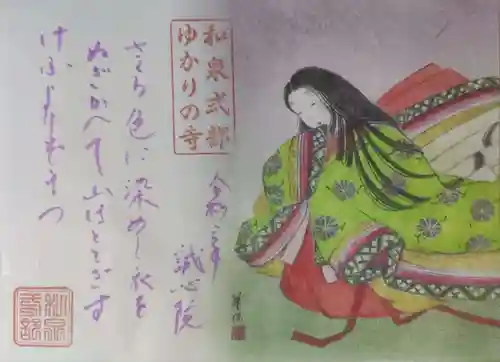 和泉式部
ゆかりの寺
令和
誠心院
さくら色に染めし衣を
ぬぎかへて山ほととぎす
けふよりぞまつ
和泉
式部